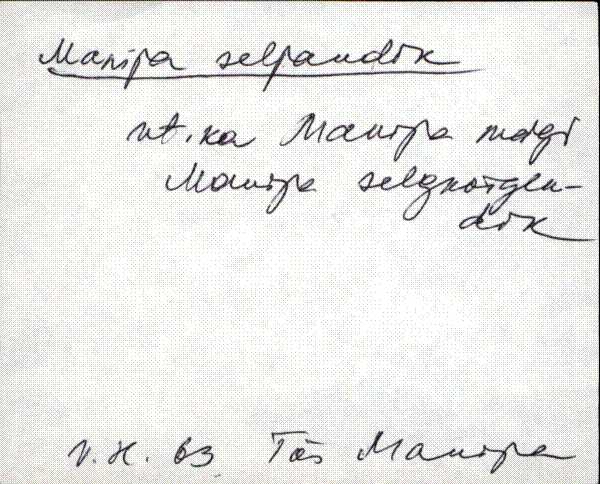 Manipa seljandik
vt. ka Manipa mägi
Manipa selgkõrgen-
dik
V.H. 63 Tõs Manipa